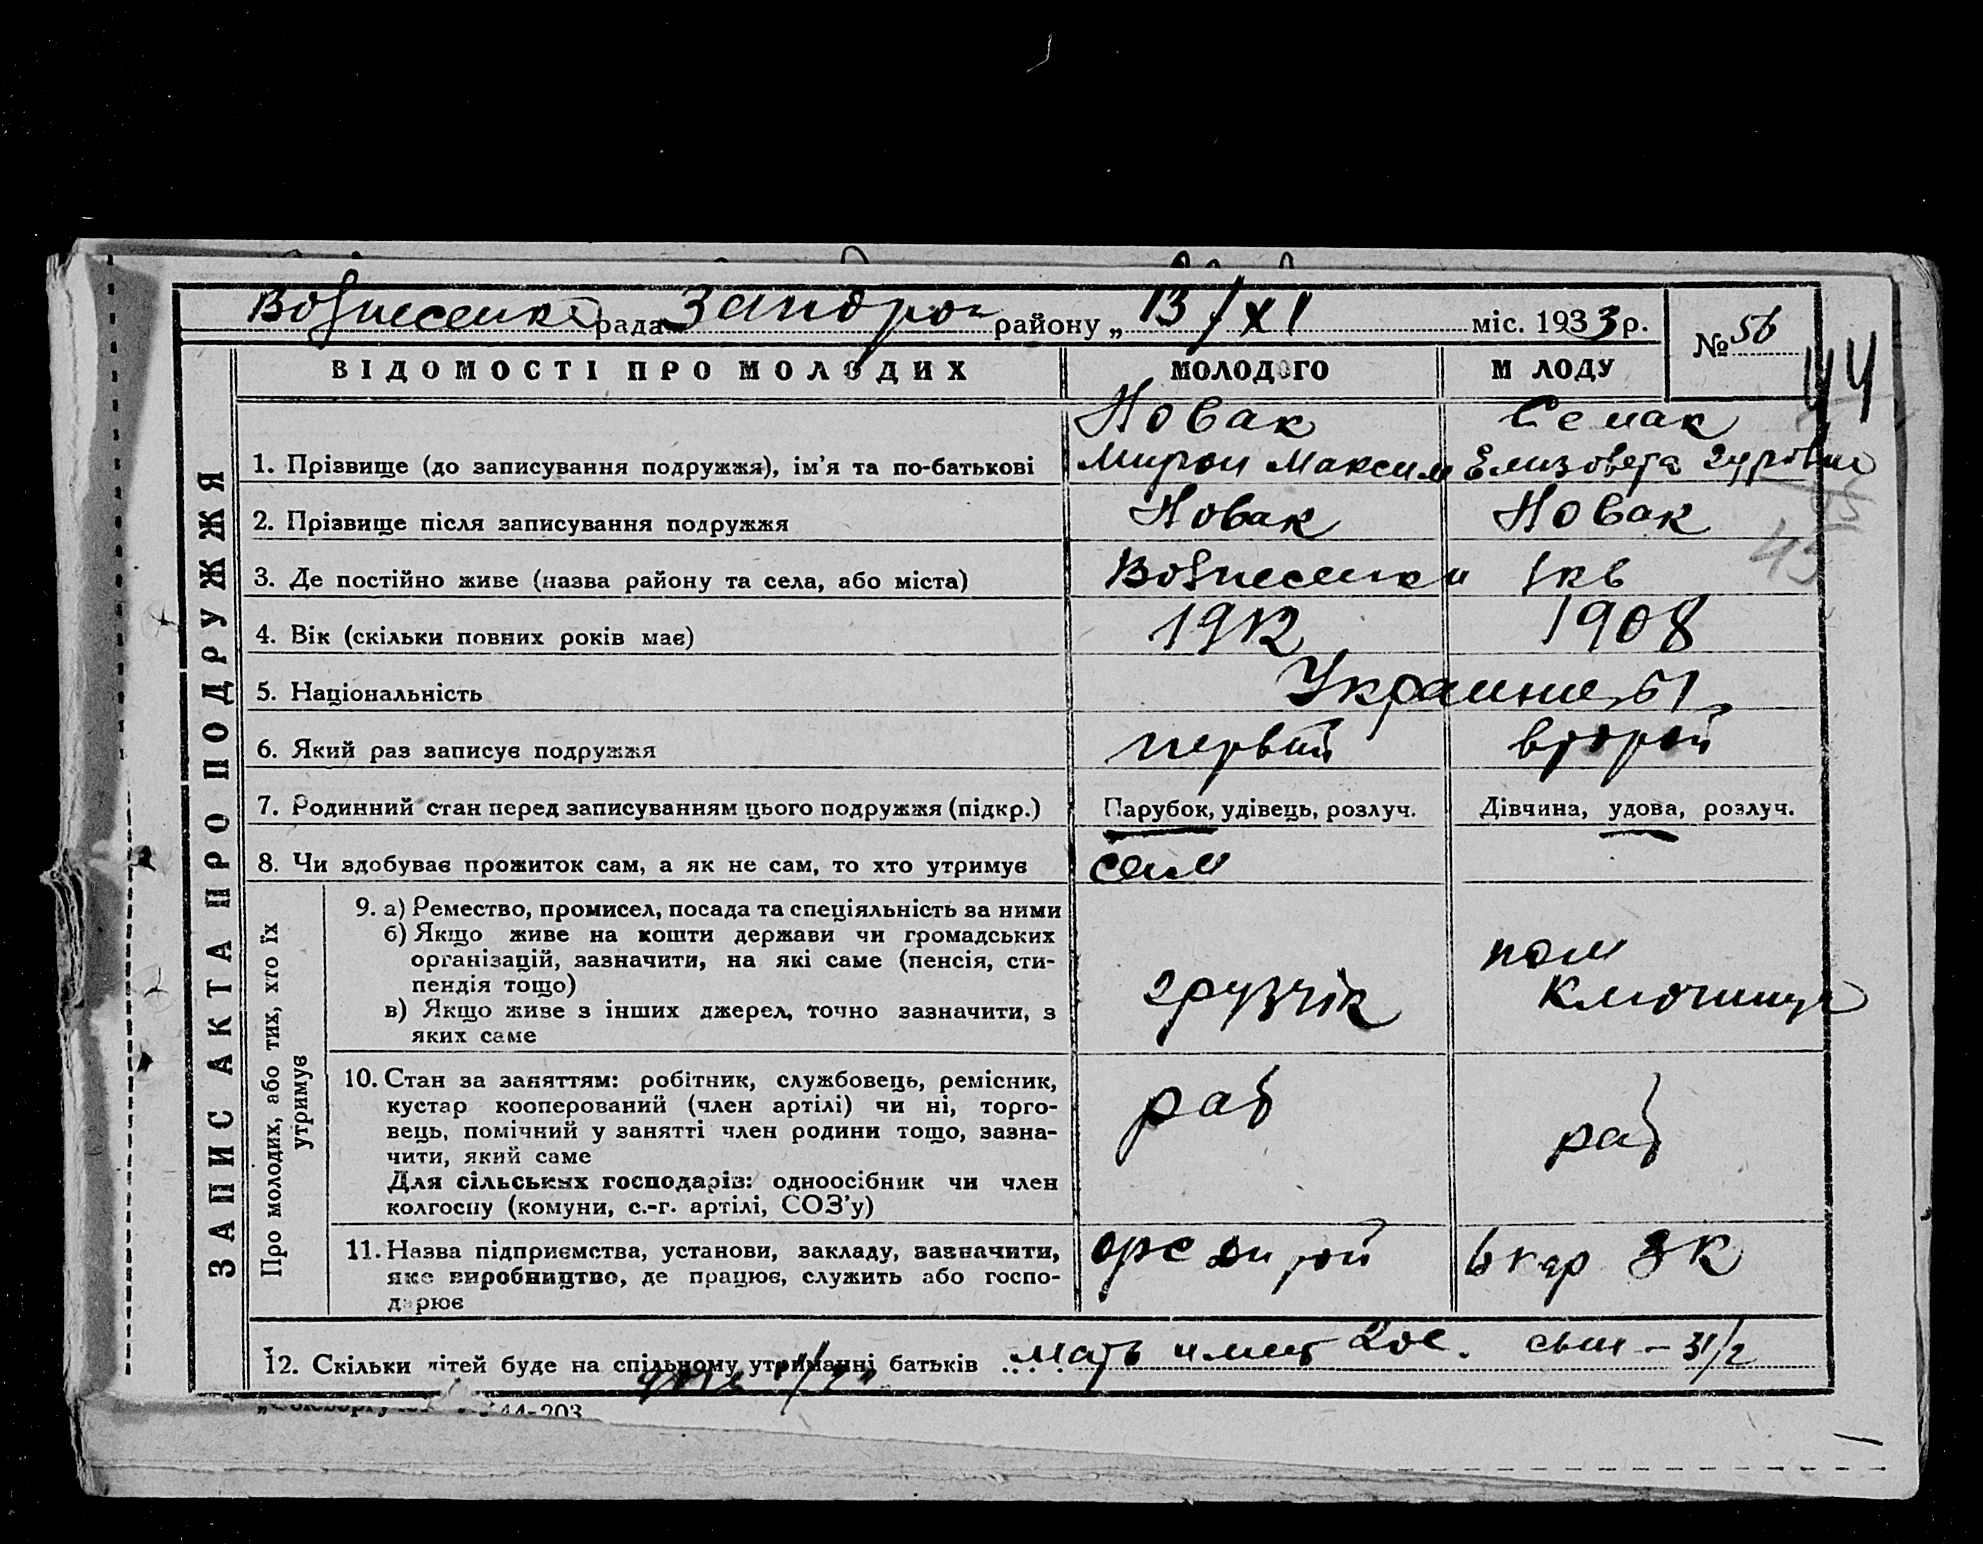 Вознесенка рада Запорож району „ 13/XI міс. 1933 р.
№ 56
44
ВІДОМОСТІ ПРО МОЛОДИХ МОЛОДОГО М ЛОДУ
ЗАПИС АКТА ПРО ПОДРУЖЖЯ
Новак Семак
1. Прізвище (до записування подружжя), ім'я та по-батькові Мирон Максим Елизовета
2. Прізвище після записування подружжя Новак Новак
45
3. Де постійно живе (назва району та села, або міста) Вознесенка
4. Вік (скільки повних років має) 1912 1908
5. Національність Украинцы
6. Який раз записує подружжя первый второй
7. Родинний стан перед записуванням цього подружжя (підкр.) Парубок, удівець, розлуч. Дівчина, удова, розлуч.
8. Чи здобуває прожиток сам, а як не сам, то хто утримує сам
Про молодих, або тих, хто їх
утримує
9. а) Ремество, промисел, посада та спеціяльність за ними
б) Якщо живе на кошти держави чи громадських
організацій, зазначити, на які саме (пенсія, сти-
пендія тощо)
в) Якщо живе з інших джерел, точно зазначити, з
яких саме
грузчік
пом
Ключница
10. Стан за заняттям: робітник, службовець, ремісник,
кустар кооперований (член артілі) чи ні, торго-
вець, помічний у занятті член родини тощо, зазна-
чити, який саме
Для сільських господарів: одноосібник чи член
колгоспу (комуни, с.-г. артілі, СОЗ'у)
раб
раб
11. Назва підприємства, установи, закладу, зазначити,
яке виробництво, де працює, служить або госпо-
дарює
12. Скільки дітей буде на спільному утриманні батьків мать имеет сын - 3 1/2
44-203